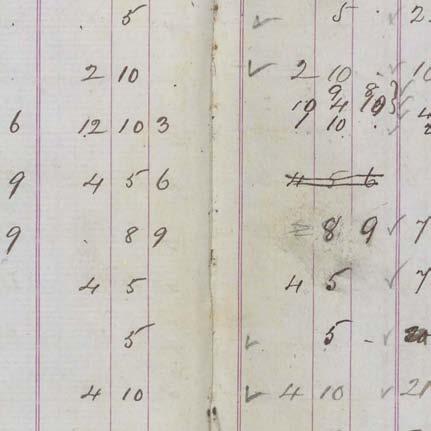 5 5 2
2 10 2 10 10
9 8
10 4 10
6 12 10 3 1 10 .
9 4 5 6 4 5 6
9 . 8 9 8 9 7
4 5 4 5 7
5 5 -
4 10 4 10 21